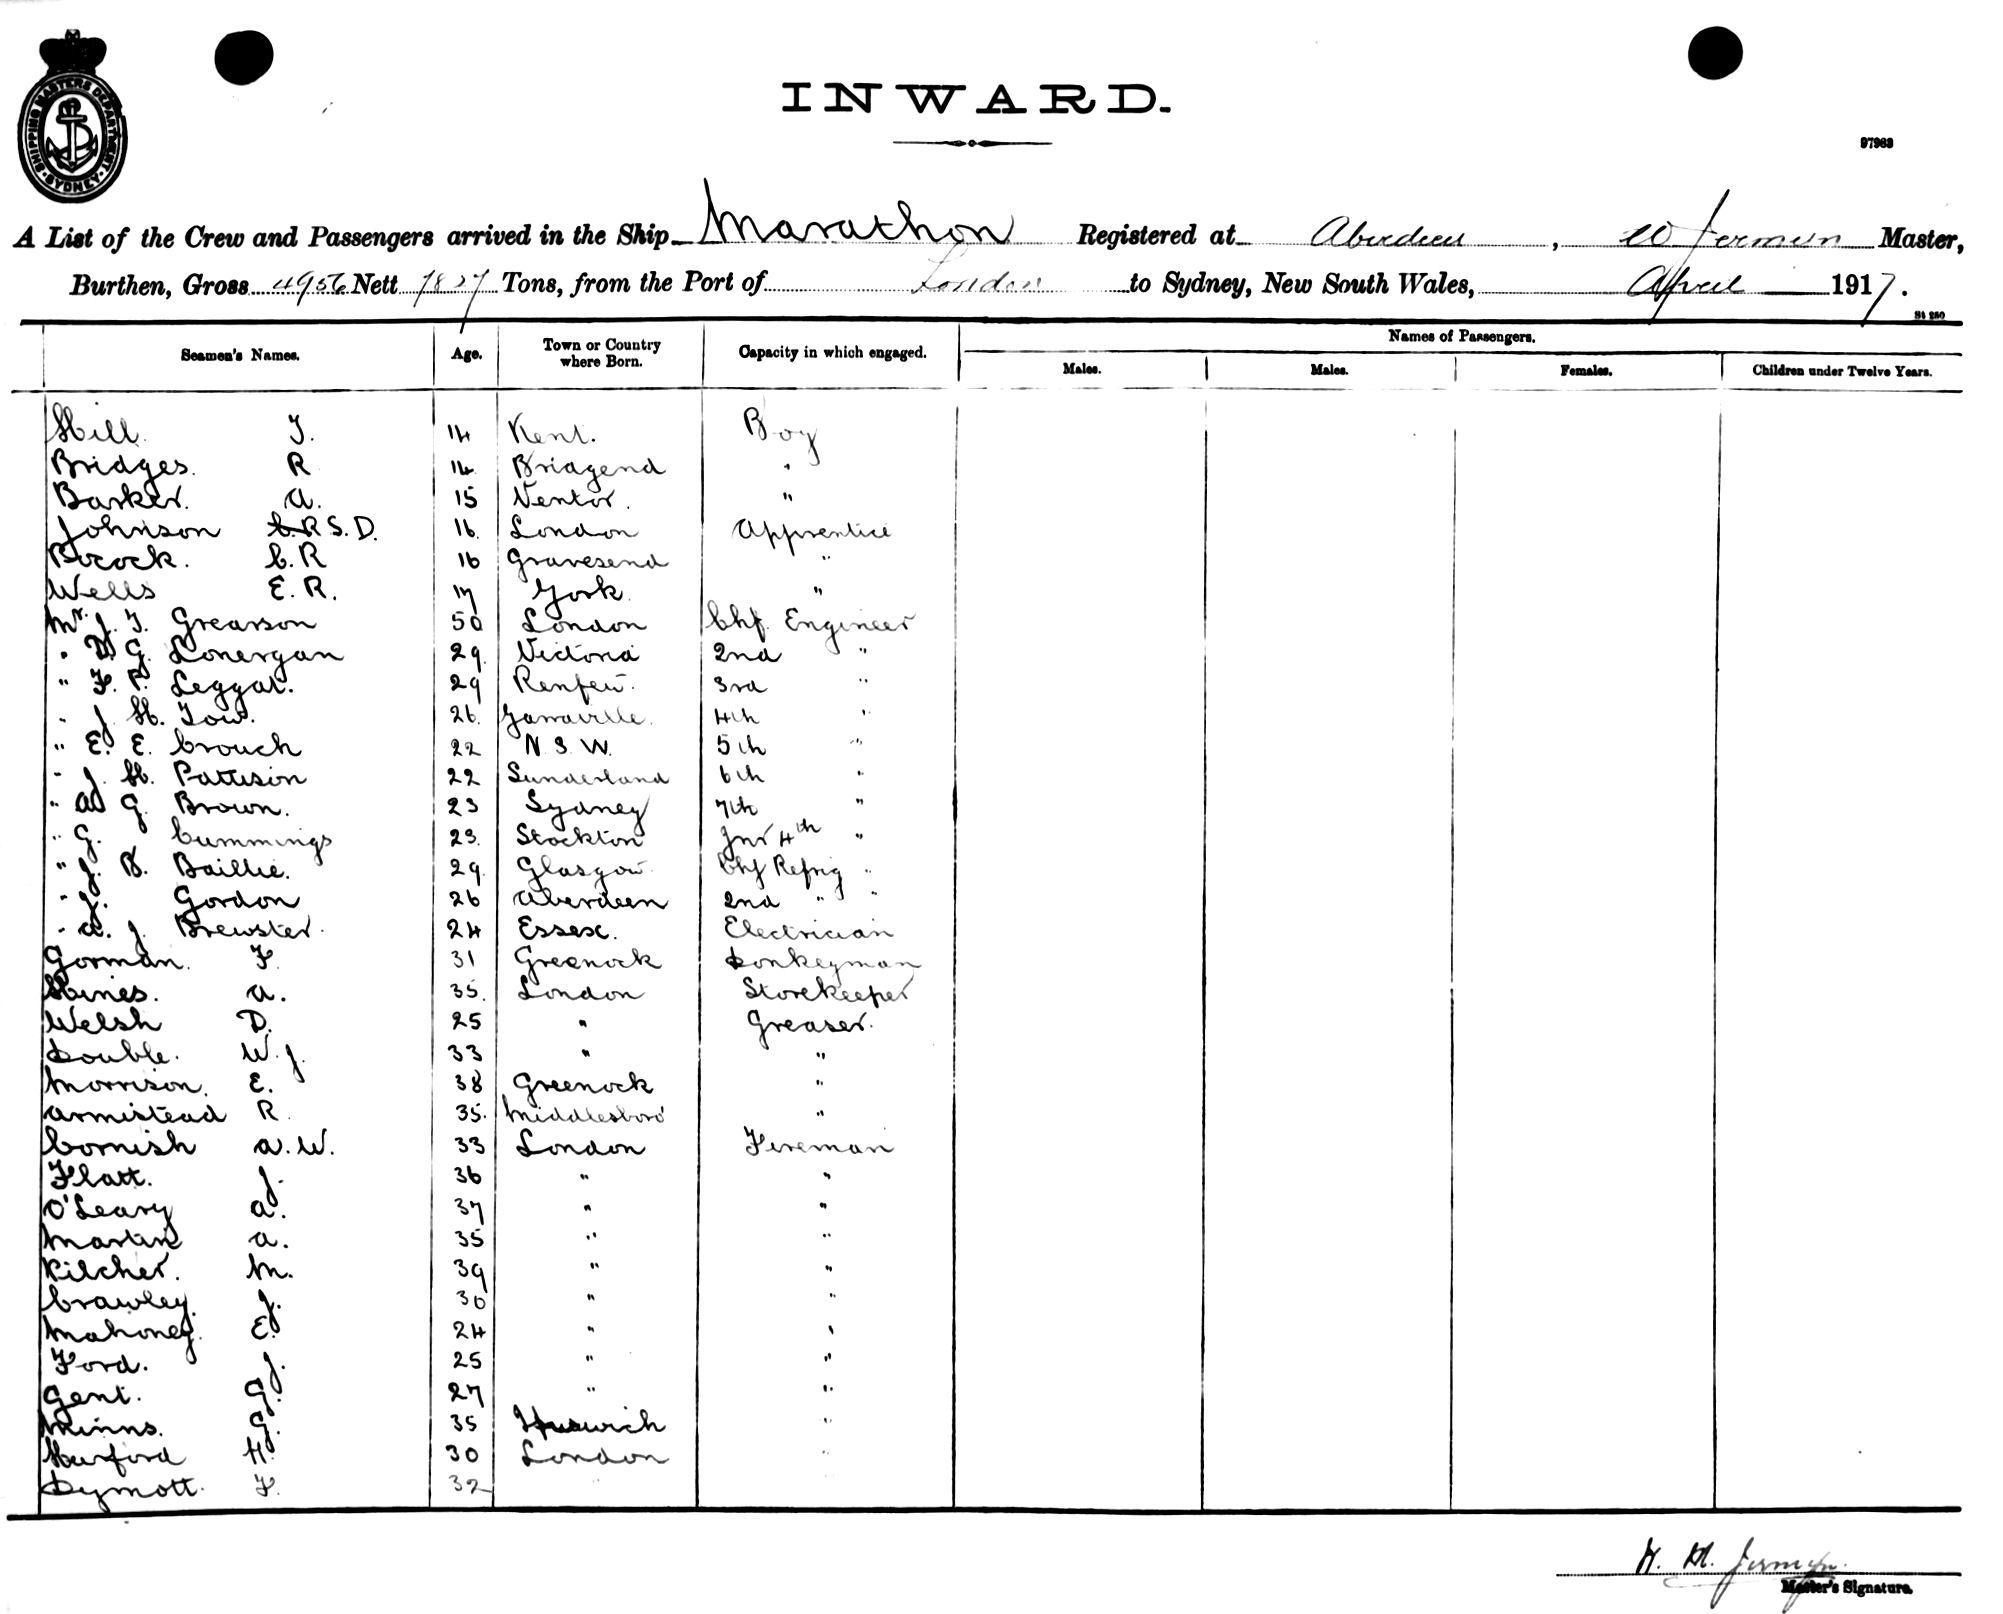 SHIPPING MASTERS DEPARTMENT
SYDNEY
INWARD.
97989
A List of the Crew and Passengers arrived in the Ship Marathon Registered at Aberdeen, W Jermyn Master,
Burthen, Gross 4956 Nett 7827 Tons, from the Port of London to Sydney, New South Wales, April 1917.
St 250
Seamen's Names. Age. Town or Country where Born. Capacity in which engaged. Names of Passengers.
Males. Males. Females. Children under Twelve Years.
Hill. T. 14 Kent. Boy
Bridges. R 14 Bridgend "
Barker. A. 15 Ventor. "
Johnson C.R S.D. 16. London Apprentice
Pocock. C.R 16 Gravesend "
Wells E.R. 17 York. "
Mr. J. T. Grearson 50 London Chf. Engineer
" D. G. Lonergan 29. Victoria 2nd "
" F. P. Leggat. 29 Renfew. 3rd "
" J. H. Tow. 26. Yarraville. 4th "
" E. E. Crouch 22 N.S.W. 5th "
" J. H. Pattison 22 Sunderland 6th "
" A G. Brown. 23 Sydney 7th "
" G. Cummings 23. Stockton Jnr 4th "
" J. B. Baillie. 29. Glasgow Chf Refrig "
" J. Gordon 26 Aberdeen 2nd " "
" A. J. Brewster. 24 Essex. Electrician
Gorman. F. 31 Greenock Donkeyman
Hines. A. 35. London Storekeeper
Welsh D. 25 " Greaser.
Double. W.J. 33 " "
Morrison. E. 38 Greenock "
Armistead R. 35. Middlesboro' "
Cornish A.W. 33 London Fireman
Flatt. J. 36 " "
O'Leary A. 37 " "
Martin A. 35 " "
Pilcher. M. 39 " "
Crawley. J. 30 " "
Mahoney. E. 24 " "
Ford. J. 25 " "
Gent. G. 27 " "
Minns. G. 35 Ipswich "
Hurford H. 30 London "
Dymott. F. 32 "
W. H. Jermyn.
Master's Signature.